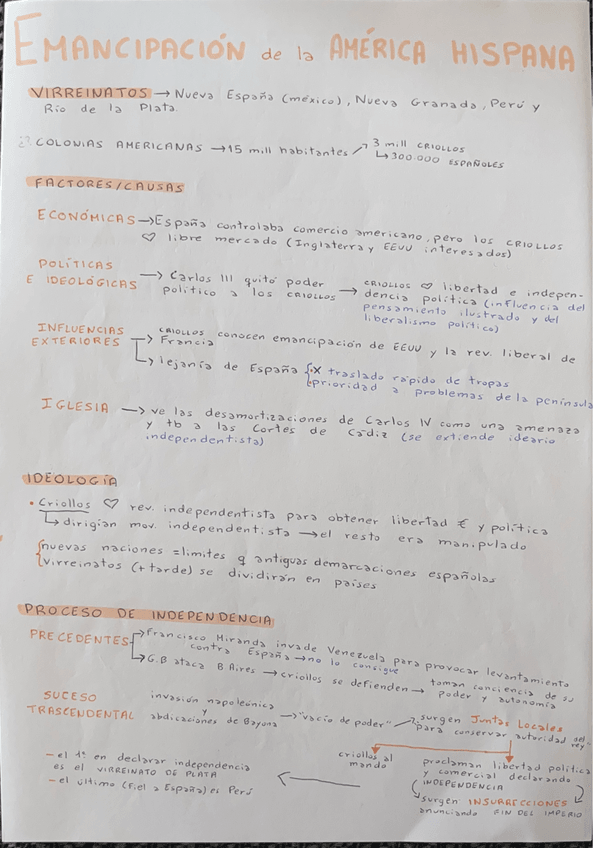 EMANCIPACIÓN de la AMÉRICA HISPANA
VIRREINATOS → Nueva España (méxico), Nueva Granada, Perú y
Río de la Plata.
COLONIAS AMERICANAS → 15 mill habitantes ↗ 3 mill CRIOLLOS
↳ 300.000 ESPAÑOLES
FACTORES/CAUSAS
ECONÓMICAS → España controlaba comercio americano, pero los CRIOLLOS
♡ libre mercado (Inglaterra y EEUU interesados)
POLÍTICAS
E IDEOLÓGICAS → Carlos III quitó poder
político a los CRIOLLOS → CRIOLLOS ♡ libertad e indepen-
dencia política (influencia del
pensamiento ilustrado y del
liberalismo político)
INFLUENCIAS
EXTERIORES → CRIOLLOS conocen emancipación de EEUU y la rev. liberal de
Francia
↳ lejanía de España { X traslado rápido de tropas
prioridad a problemas de la península
IGLESIA → ve las desamortizaciones de Carlos IV como una amenaza
y tb a las Cortes de Cádiz (se extiende ideario
independentista)
IDEOLOGÍA
• Criollos ♡ rev. independentista para obtener libertad € y política
↳ dirigían mov. independentista → el resto era manipulado
{ nuevas naciones = límites q antiguas demarcaciones españolas
virreinatos (+ tarde) se dividirán en países
PROCESO DE INDEPENDENCIA
PRECEDENTES → Francisco Miranda invade Venezuela para provocar levantamiento
contra España → no lo consigue
↳ G.B ataca B Aires → criollos se defienden → toman conciencia de su
poder y autonomía
SUCESO
TRASCENDENTAL
invasión napoleónica
y
abdicaciones de Bayona → "vacío de poder" ↗ surgen Juntas Locales
para conservar autoridad del
rey
criollos al
mando
proclaman libertad política
y comercial declarando
INDEPENDENCIA
surgen INSURRECCIONES
anunciando FIN DEL IMPERIO
- el 1º en declarar independencia
es el VIRREINATO DE PLATA
- el último (fiel a España) es Perú